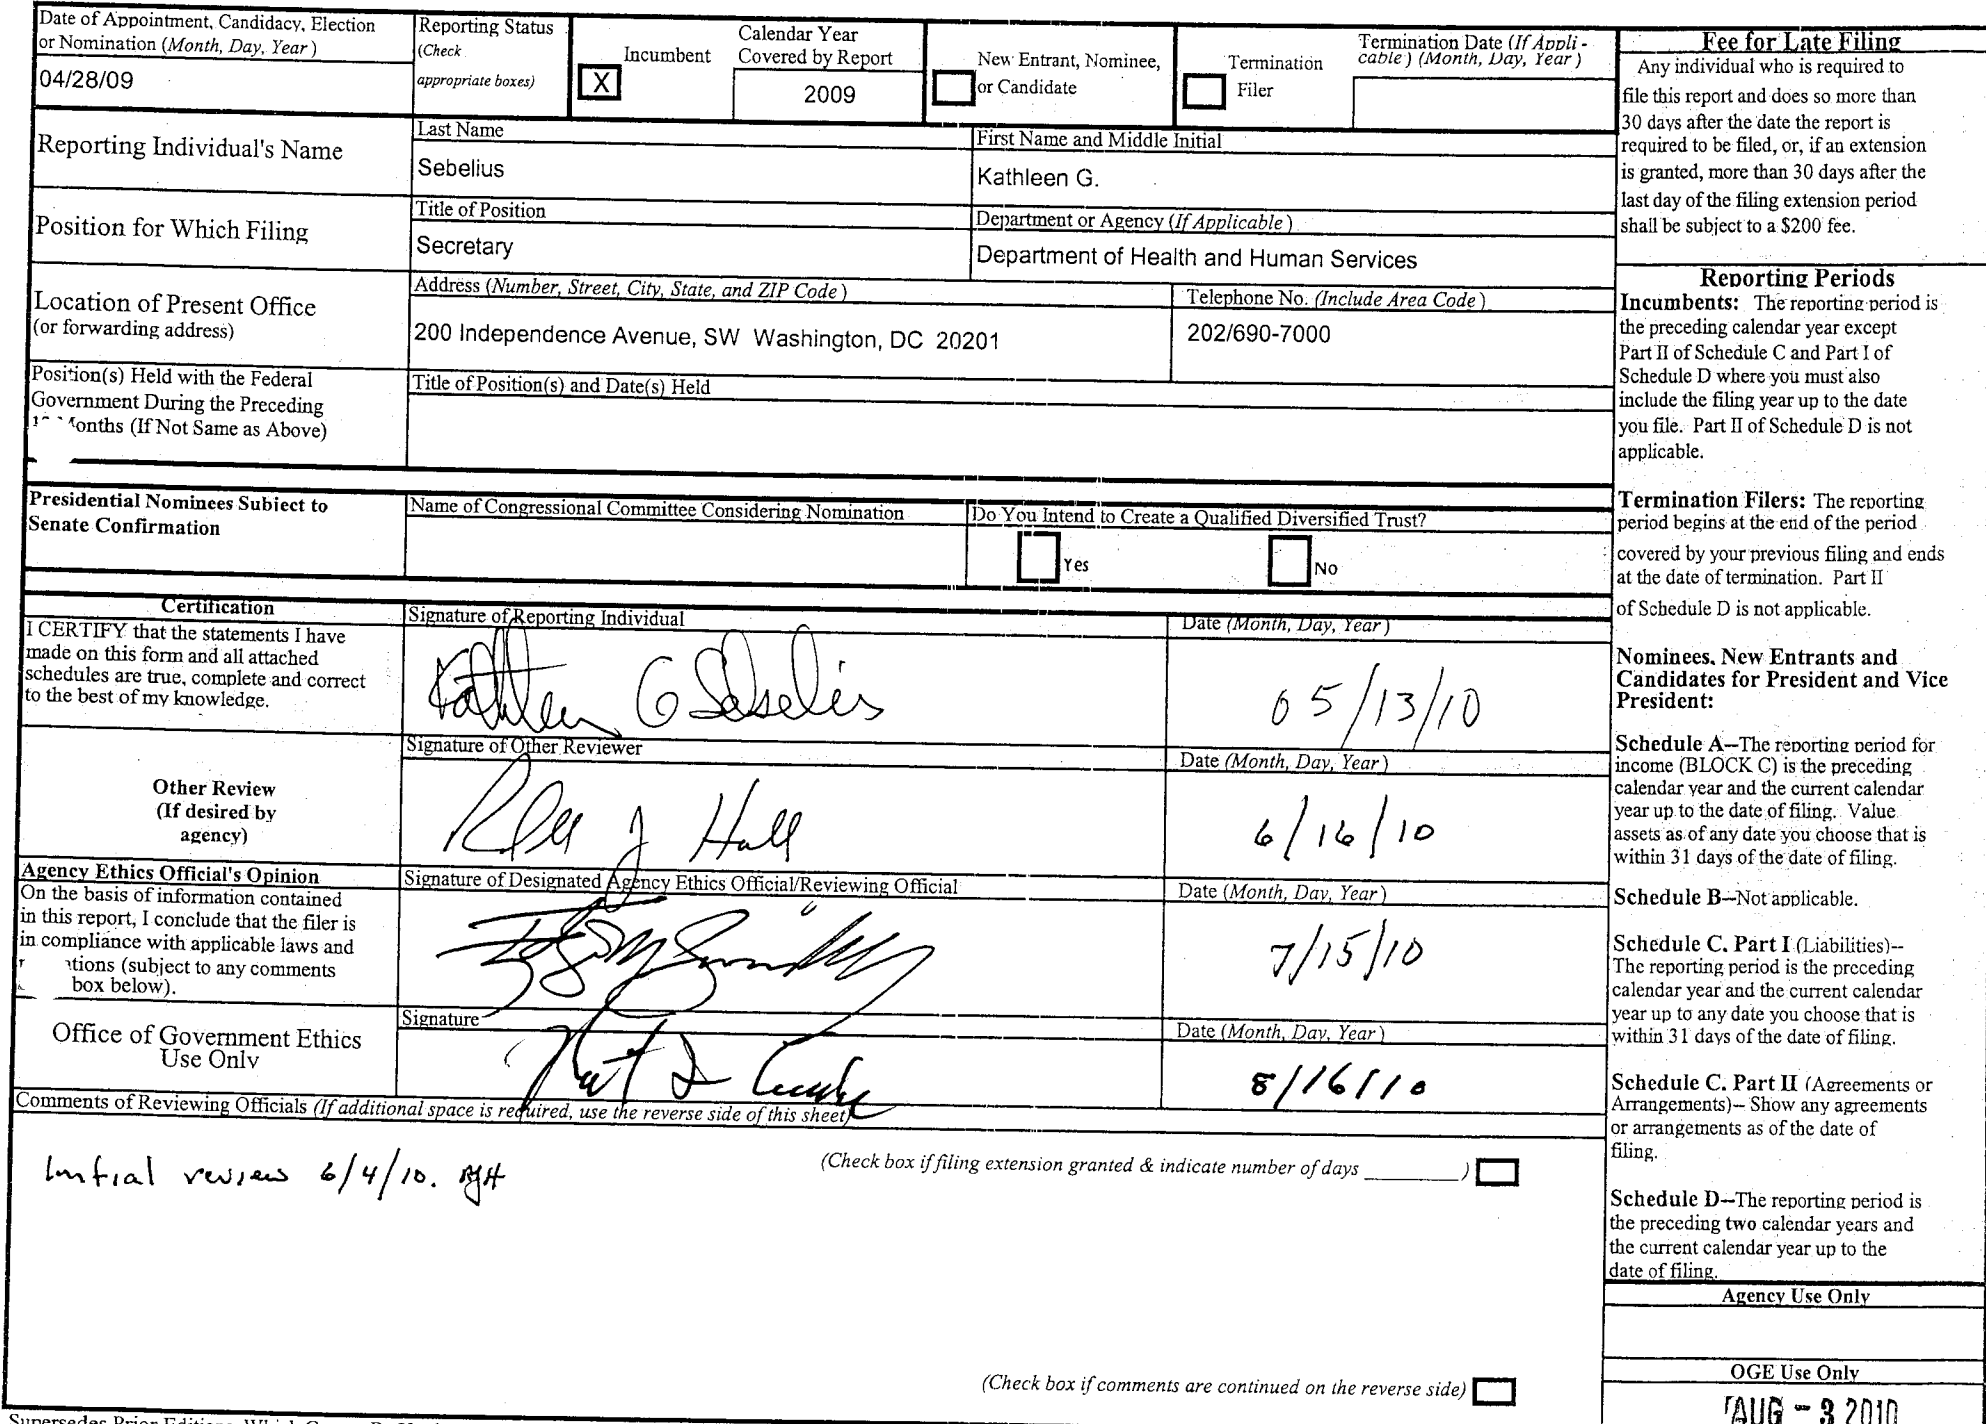 Date of Appointment, Candidacy, Election
or Nomination (Month, Day, Year)
04/28/09
Reporting Status
(Check
appropriate boxes)
Incumbent
X
Calendar Year
Covered by Report
2009
New Entrant, Nominee,
or Candidate
Termination
Filer
Termination Date (If Appli-
cable) (Month, Day, Year)
Reporting Individual's Name
Last Name
Sebelius
First Name and Middle Initial
Kathleen G.
Position for Which Filing
Title of Position
Secretary
Department or Agency (If Applicable)
Department of Health and Human Services
Location of Present Office
(or forwarding address)
Address (Number, Street, City, State, and ZIP Code)
200 Independence Avenue, SW Washington, DC 20201
Telephone No. (Include Area Code)
202/690-7000
Position(s) Held with the Federal
Government During the Preceding
onths (If Not Same as Above)
Title of Position(s) and Date(s) Held
Presidential Nominees Subject to
Senate Confirmation
Name of Congressional Committee Considering Nomination
Do You Intend to Create a Qualified Diversified Trust?
Yes
No
Certification
I CERTIFY that the statements I have
made on this form and all attached
schedules are true, complete and correct
to the best of my knowledge.
Signature of Reporting Individual
Kathleen G Sebelius
Date (Month, Day, Year)
05/13/10
Other Review
(If desired by
agency)
Signature of Other Reviewer
J Hall
Date (Month, Day, Year)
6/16/10
Agency Ethics Official's Opinion
On the basis of information contained
in this report, I conclude that the filer is
in compliance with applicable laws and
tions (subject to any comments
box below).
Signature of Designated Agency Ethics Official/Reviewing Official
Date (Month, Day, Year)
7/15/10
Office of Government Ethics
Use Only
Signature
Date (Month, Day, Year)
8/16/10
Comments of Reviewing Officials (If additional space is required, use the reverse side of this sheet)
Initial review 6/4/10. RJH
(Check box if filing extension granted & indicate number of days ________)
(Check box if comments are continued on the reverse side)
Fee for Late Filing
Any individual who is required to
file this report and does so more than
30 days after the date the report is
required to be filed, or, if an extension
is granted, more than 30 days after the
last day of the filing extension period
shall be subject to a $200 fee.
Reporting Periods
Incumbents: The reporting period is
the preceding calendar year except
Part II of Schedule C and Part I of
Schedule D where you must also
include the filing year up to the date
you file. Part II of Schedule D is not
applicable.
Termination Filers: The reporting
period begins at the end of the period
covered by your previous filing and ends
at the date of termination. Part II
of Schedule D is not applicable.
Nominees, New Entrants and
Candidates for President and Vice
President:
Schedule A--The reporting period for
income (BLOCK C) is the preceding
calendar year and the current calendar
year up to the date of filing. Value
assets as of any date you choose that is
within 31 days of the date of filing.
Schedule B--Not applicable.
Schedule C, Part I (Liabilities)--
The reporting period is the preceding
calendar year and the current calendar
year up to any date you choose that is
within 31 days of the date of filing.
Schedule C, Part II (Agreements or
Arrangements)-- Show any agreements
or arrangements as of the date of
filing.
Schedule D--The reporting period is
the preceding two calendar years and
the current calendar year up to the
date of filing.
Agency Use Only
OGE Use Only
AUG - 3 2010
Supersedes Prior Editions